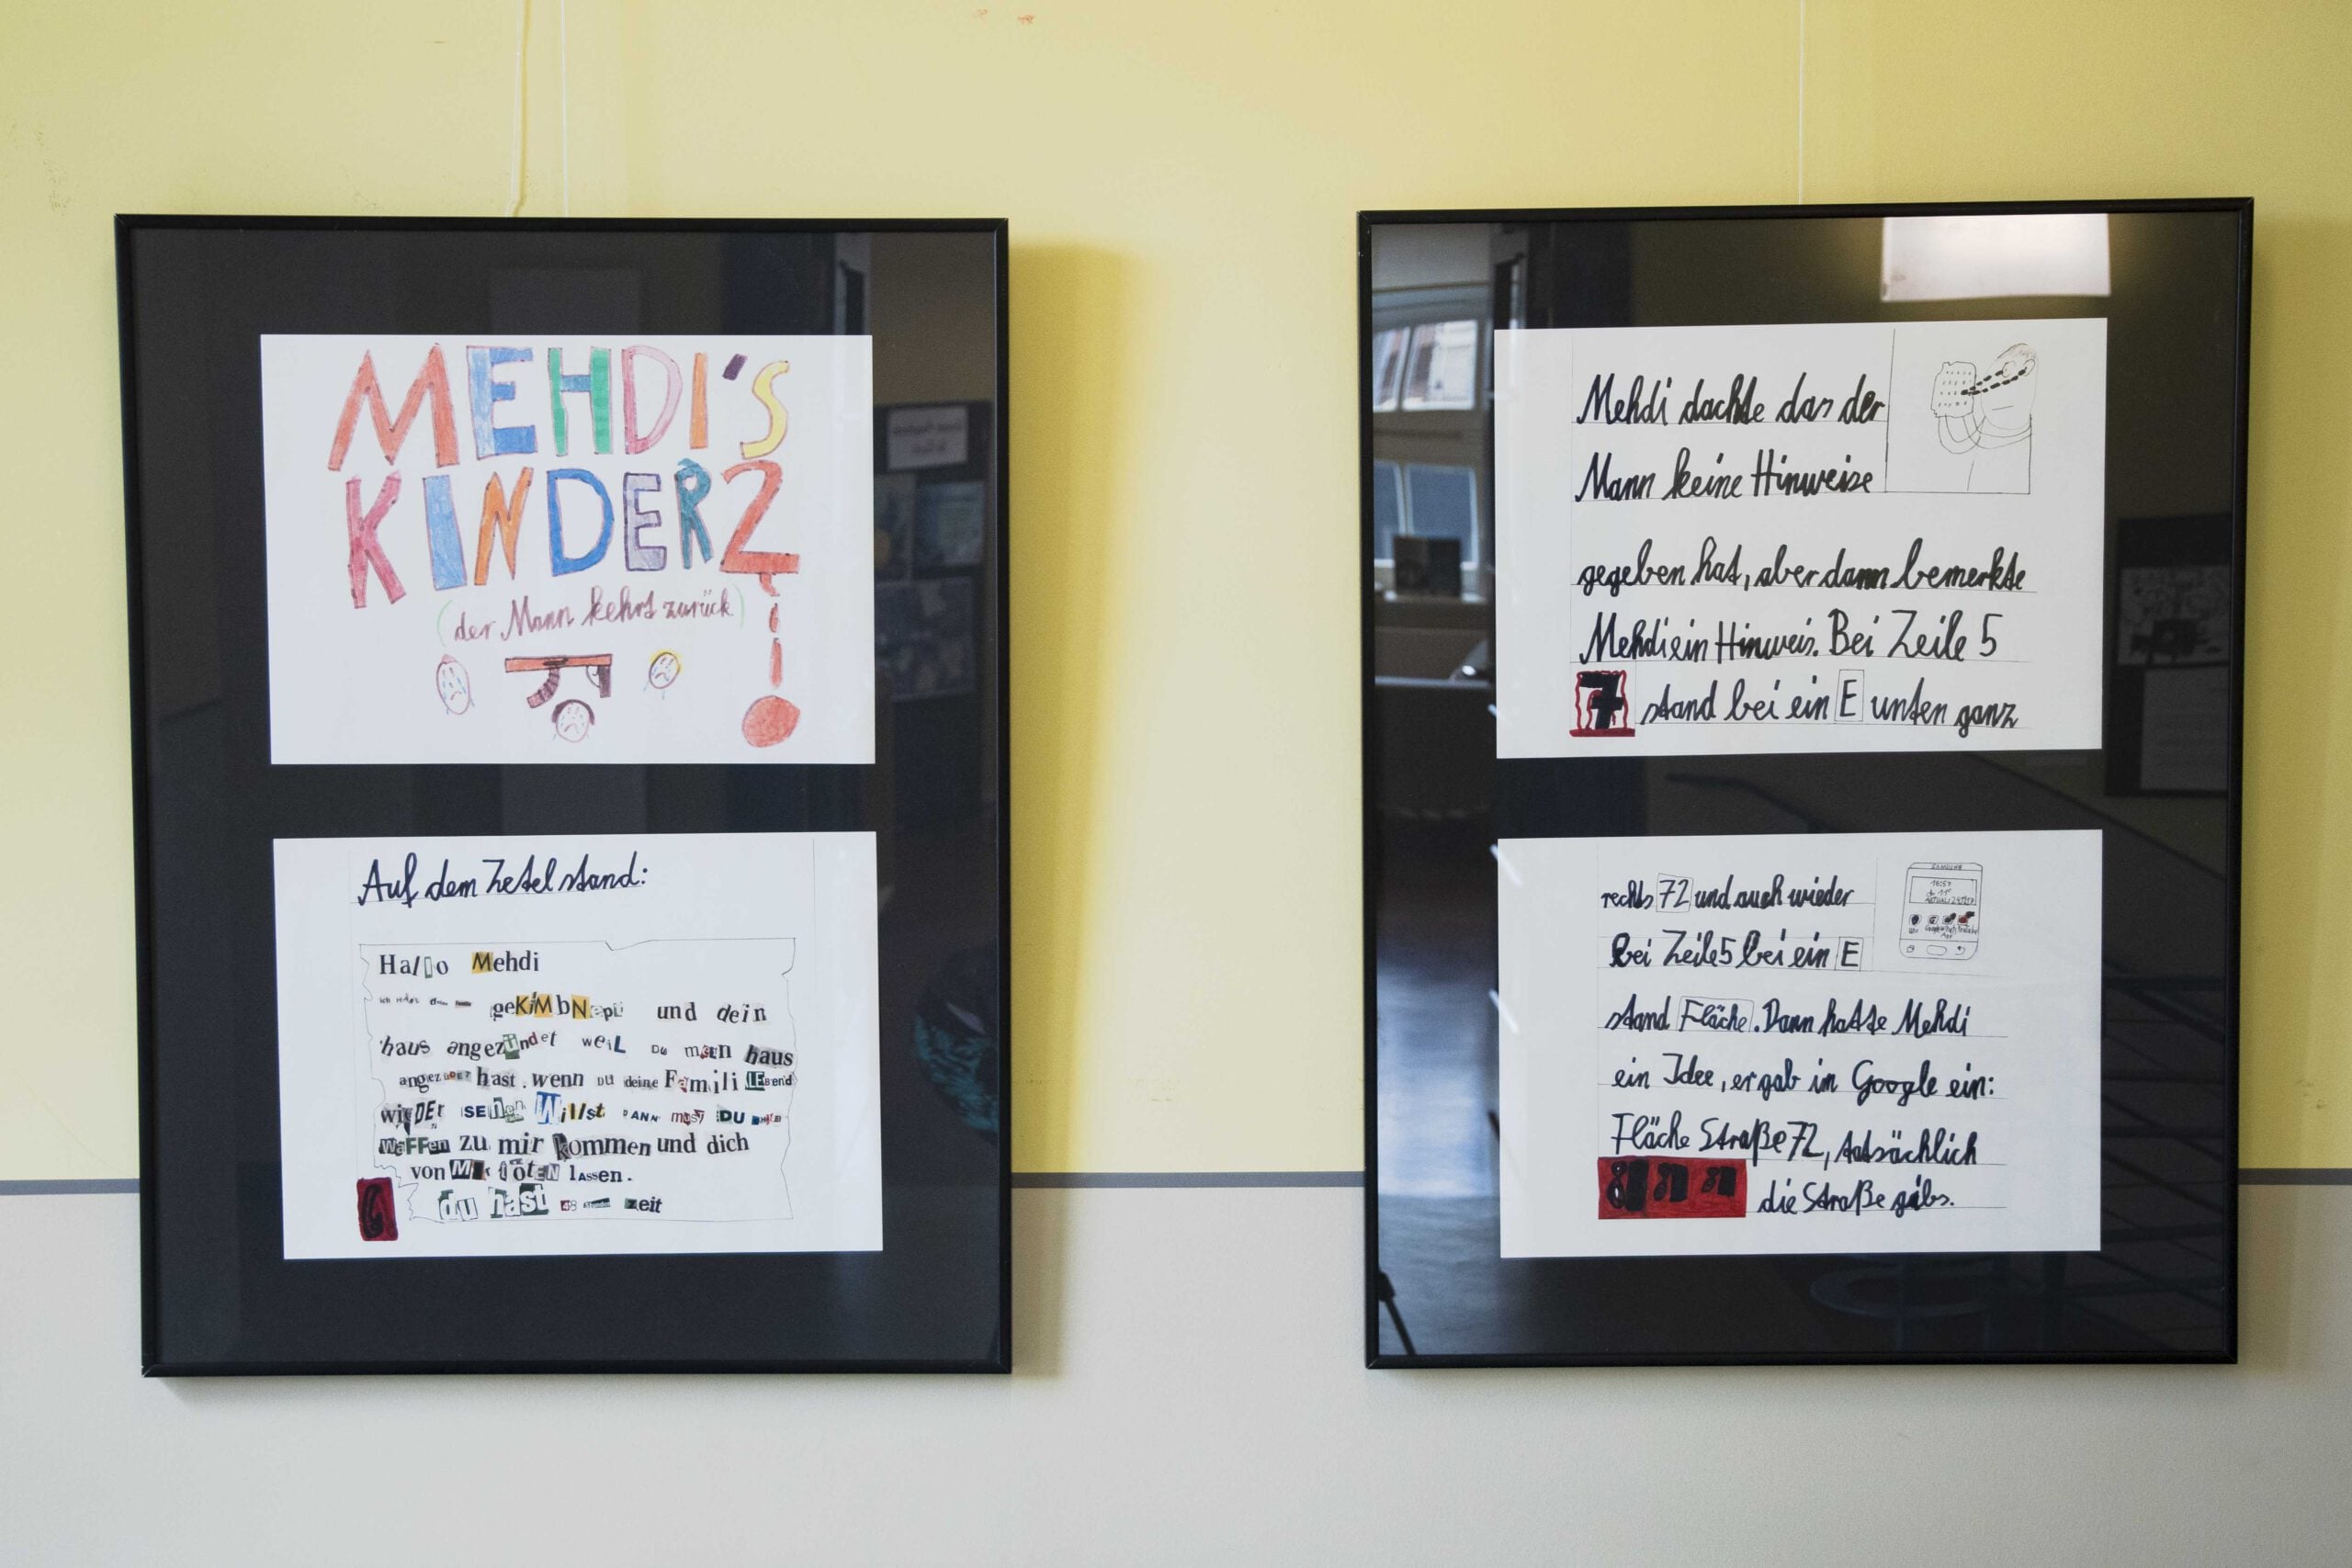 MEHDI'S
KINDER 2
(der Mann kehrt zurück)
Auf dem Zetel stand:
Hallo Mehdi
geKiMbNept und dein
haus angezündet weiL Du mein haus
hast. wenn DU deine Famili LEBend
wieDEr SEhen Willst DANN musst DU
WaFFen zu mir kommen und dich
von Mir töten lassen.
6
du hast 48 zeit
Mehdi dachte das der
Mann keine Hinweise
gegeben hat, aber dann bemerkte
Mehdi ein Hinweis. Bei Zeile 5
7 stand bei ein E unten ganz
rechts 72 und auch wieder
Bei Zeile 5 bei ein E
stand Fläche. Dann hatte Mehdi
ein Idee, er gab im Google ein:
Fläche Straße 72, tatsächlich
die Straße gibs.